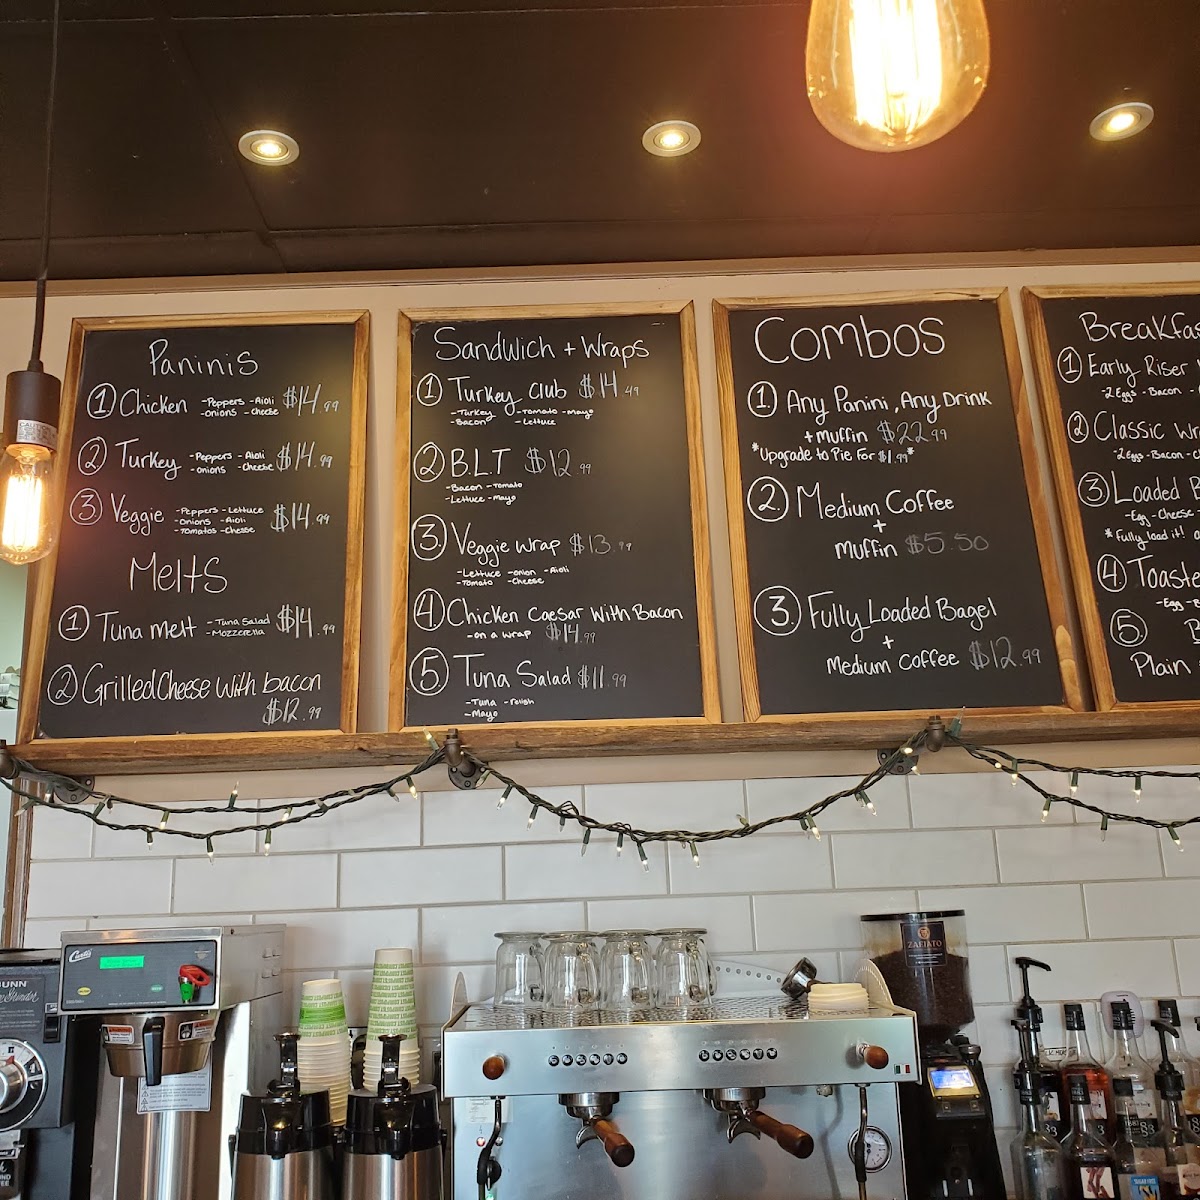 Paninis
1 Chicken -Peppers -Aioli $14.99
-onions -cheese
2 Turkey -Peppers -Aioli $14.99
-onions -Cheese
3 Veggie -Peppers -Lettuce $14.99
-Onions -Aioli
-Tomatos -Chesse
Melts
1 Tuna melt -Tuna Salad $14.99
-Mozzerella
2 Grilled Cheese with bacon
$12.99
Sandwich + Wraps
1 Turkey Club $14.49
-Turkey -Tomato -mayo
-Bacon -Lettuce
2 B.L.T $12.99
-Bacon -Tomato
-Lettuce -Mayo
3 Veggie wrap $13.99
-Lettuce -onion -Aioli
-Tomato -Cheese
4 Chicken Caesar With Bacon
-on a wrap $14.99
5 Tuna Salad $11.99
-Tuna -relish
-Mayo
Combos
1. Any Panini, Any Drink
+ Muffin $22.99
*Upgrade to Pie for $1.99*
2. Medium Coffee
+
Muffin $5.50
3. Fully Loaded Bagel
+
Medium Coffee $12.99
Breakfa
1 Early Riser
-2 Eggs -Bacon -
2 Classic Wr
-2 Eggs -Bacon -C
3 Loaded B
-Egg -Cheese
*Fully load it!
4 Toaste
-Egg -B
5. B
Plain
Curtis
BUNN
ZAFIATO